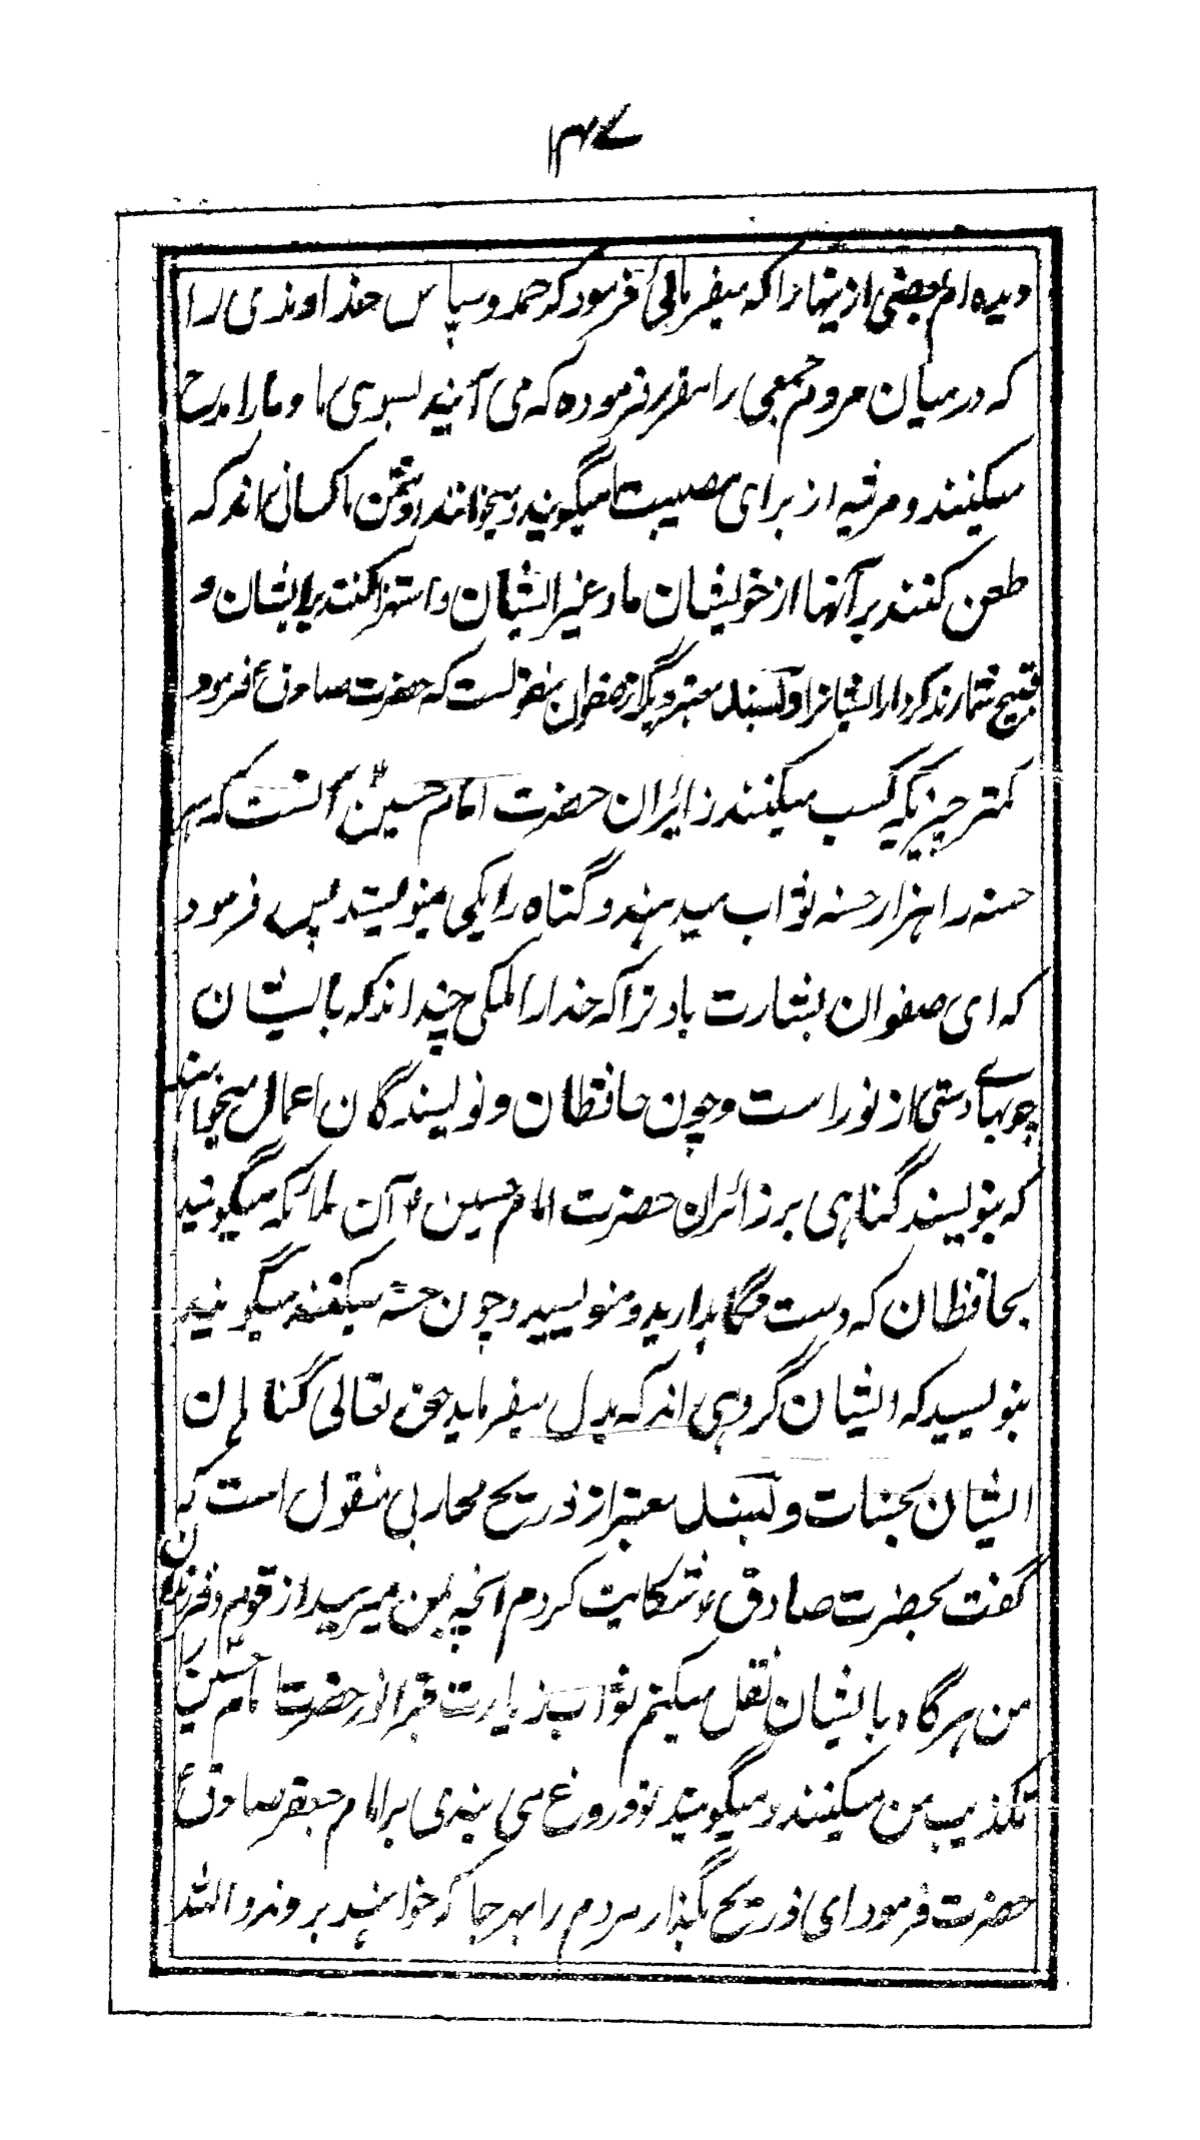 ۱۳۷
دیده ام بعضی ازینها را که میفرمائی فرمود که حمد و سپاس خداوندی را
که در میان مردم جمعی را مقرر فرموده که می آیند بسوی ما و ما را مدح
میکنند و مرثیه از برای مصیبت ما میگویند و میخوانند و دشمن ما کسانی اند که
طعن کنند بر آنها از خویشان ما و غیر ایشان و استهزا کنند بر ایشان و
قبیح شمارند کردار ایشانرا و بسند معتبر دیگر از صفوان منقولست که حضرت صادق ع فرمود
کمتر چیزیکه کسب میکنند زائران حضرت امام حسین ع آنست که هر
حسنه را هزار حسنه ثواب میدهند و گناه را یکی مینویسند پس فرمود
که ای صفوان بشارت باد ترا که خدا را ملکی چند اند که با ایشان
چوبهای دستی از نور است و چون حافظان و نویسندگان اعمال میخواهند
که بنویسند گناهی بر زائران حضرت امام حسین ع آن ملائکه میگویند
بحافظان که دست نگاهدارید و منویسید و چون حسنه میکنند میگویند
بنویسید که ایشان گروهی اند که بدل میفرماید حق تعالی گناهان
ایشان بحسنات و بسند معتبر از ذریح محاربی منقول است که
گفت بحضرت صادق ع شکایت کردم آنچه بمن میرسد از قوم و فرزندان
من هرگاه بایشان نقل میکنم ثواب زیارت قبر انور حضرت امام حسین ع
تکذیب من میکنند و میگویند تو دروغ می بندی بر امام جعفر صادق ع
حضرت فرمود ای ذریح بگذار مردم را بهر جا که خواهند بروند والله